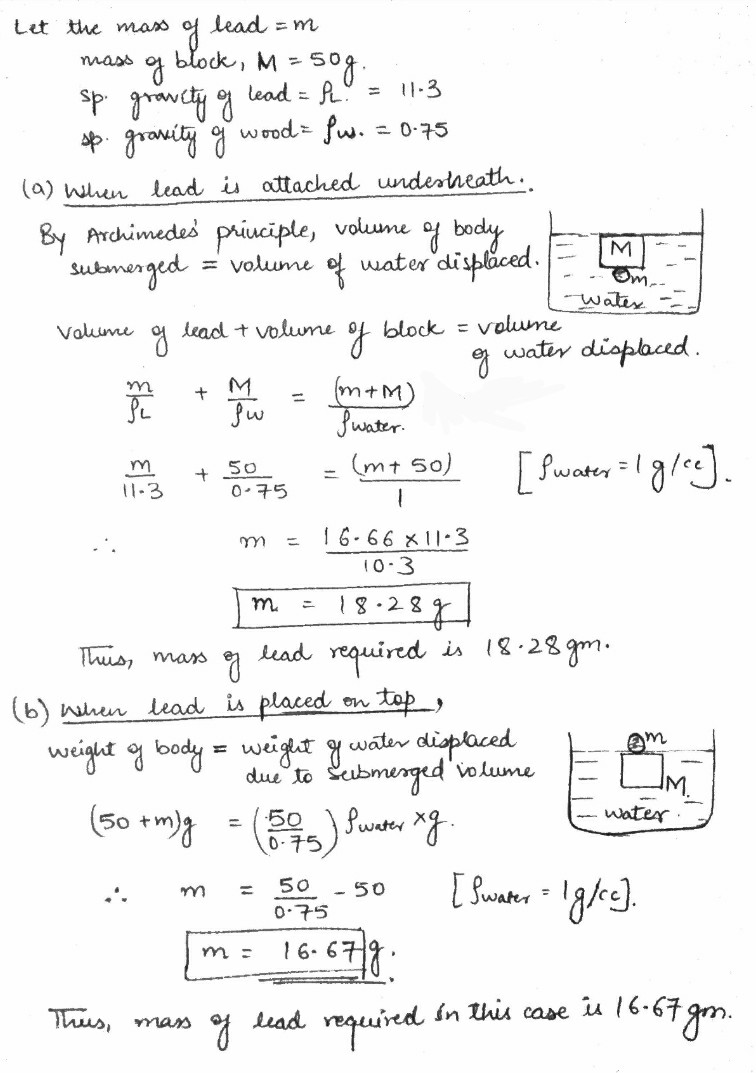 Let the mass of lead = m
mass of block, M = 50g.
sp. gravity of lead = ρL. = 11.3
sp. gravity of wood = ρw. = 0.75
(a) When lead is attached underneath.
By Archimedes' principle, volume of body
submerged = volume of water displaced.
M
m
water
Volume of lead + volume of block = volume
of water displaced.
m/ρL + M/ρW = (m+M)/ρwater.
m/11.3 + 50/0.75 = (m+50)/1 [ρwater = 1 g/cc].
∴ m = 16.66 × 11.3/10.3
m = 18.28 g
Thus, mass of lead required is 18.28 gm.
(b) When lead is placed on top,
weight of body = weight of water displaced
due to submerged volume
m
M.
water
(50 + m)g = (50/0.75) ρwater × g.
∴ m = 50/0.75 - 50 [ρwater = 1g/cc].
m = 16.67 g.
Thus, mass of lead required in this case is 16.67 gm.